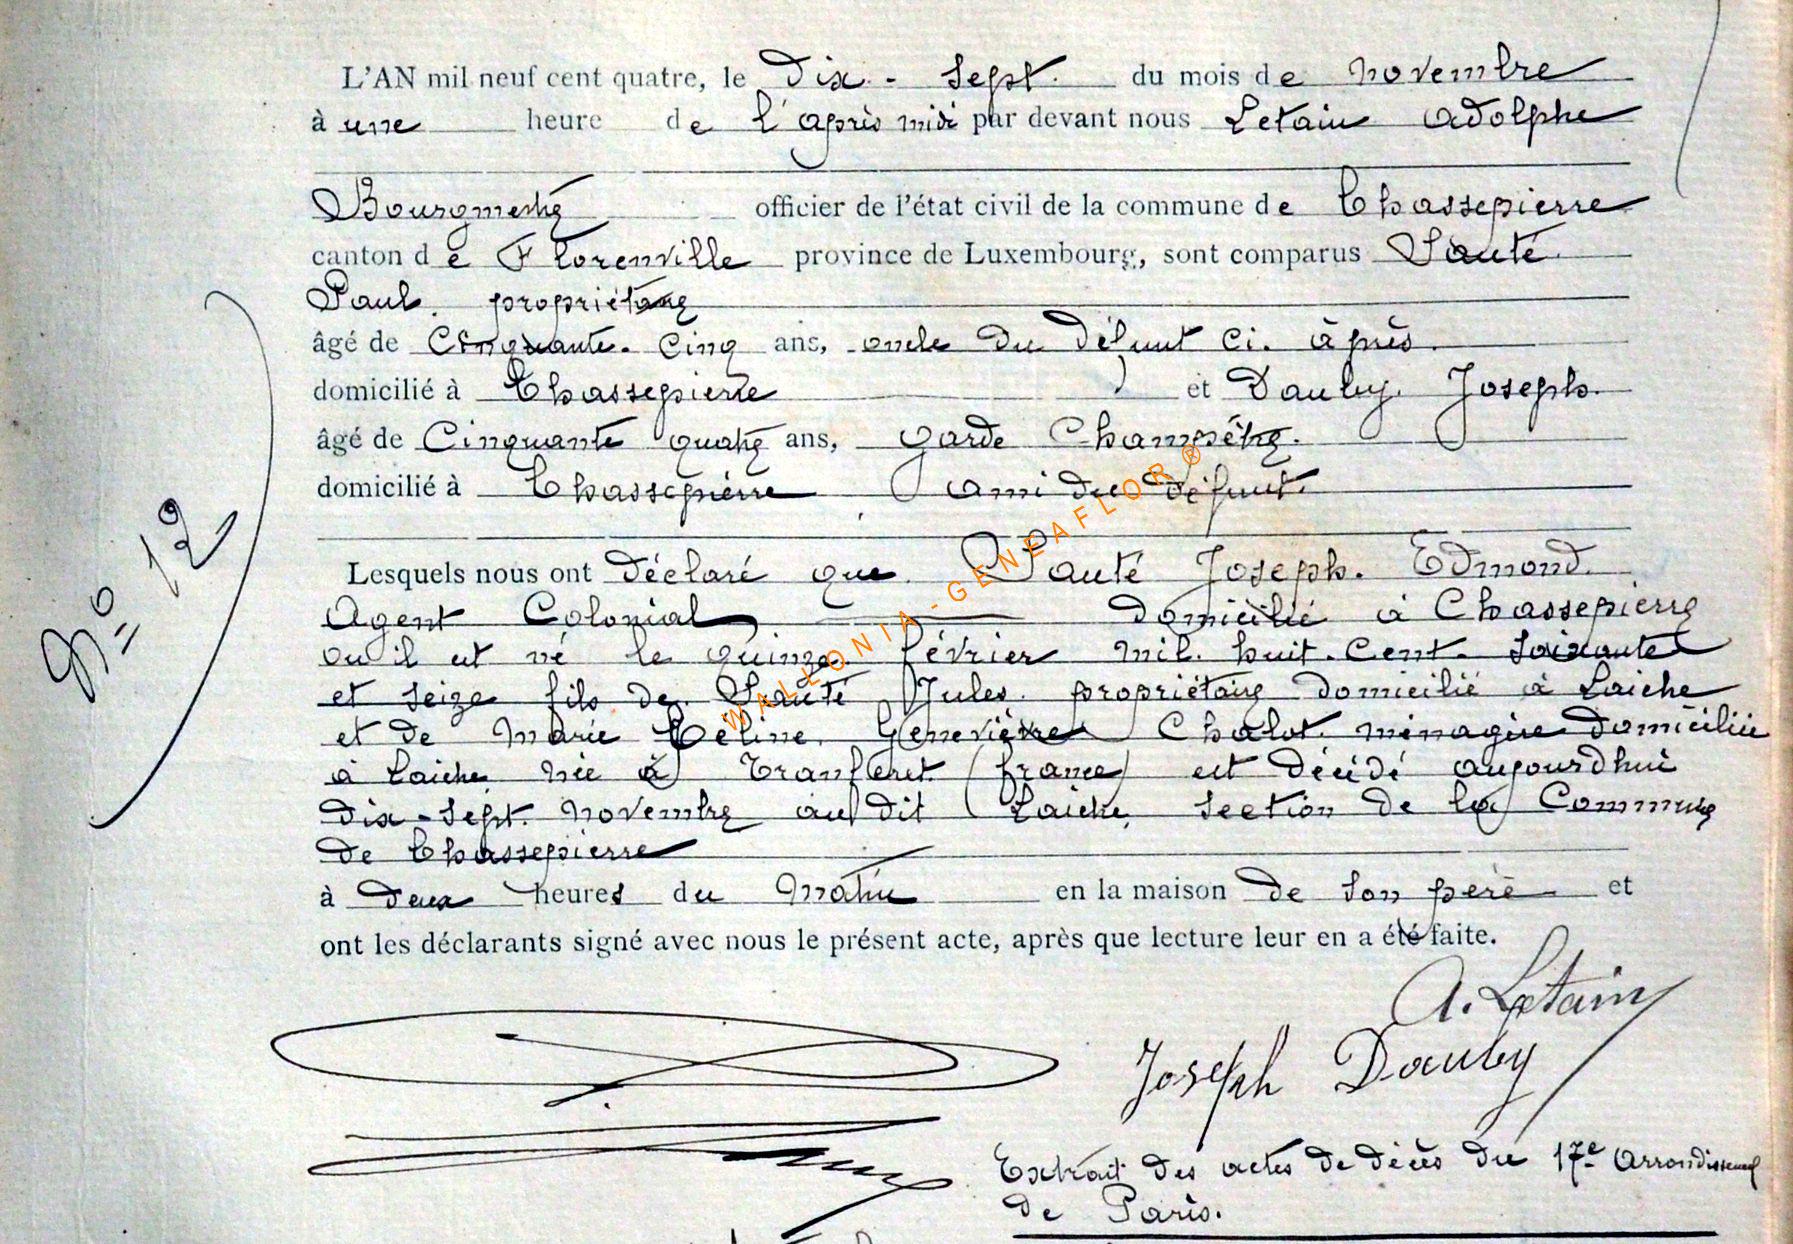 L'AN mil neuf cent quatre, le Dix-Sept du mois de Novembre
à une heure de l'après midi par devant nous Letain Adolphe
Bourgmestre officier de l'état civil de la commune de Chassepierre
canton de Florenville province de Luxembourg, sont comparus Sauté
Paul. propriétaire
âgé de Cinquante-Cinq ans, oncle du défunt ci-après
domicilié à Chassepierre et Dauby Joseph.
âgé de Cinquante quatre ans, garde Champêtre.
domicilié à Chassepierre ami du défunt.
Lesquels nous ont déclaré que Sauté Joseph. Edmond.
Agent Colonial domicilié à Chassepierre
où il est né le quinze février mil-huit-Cent-Soixante
et seize fils de Sauté Jules propriétaire domicilié à Laiche
et de Marie Céline Geneviève Chalot ménagère domiciliée
à Laiche née à (france) est décédé aujourd'hui
dix-sept novembre au dit Laiche, section de la Commune
de Chassepierre
à deux heures du matin en la maison de son père et
ont les déclarants signé avec nous le présent acte, après que lecture leur en a été faite.
N° 12
A. Letain
Joseph Dauby
Extrait des actes de décès du 17e Arrondissement
de Paris.
WALLONIA-GENEAFLOR®